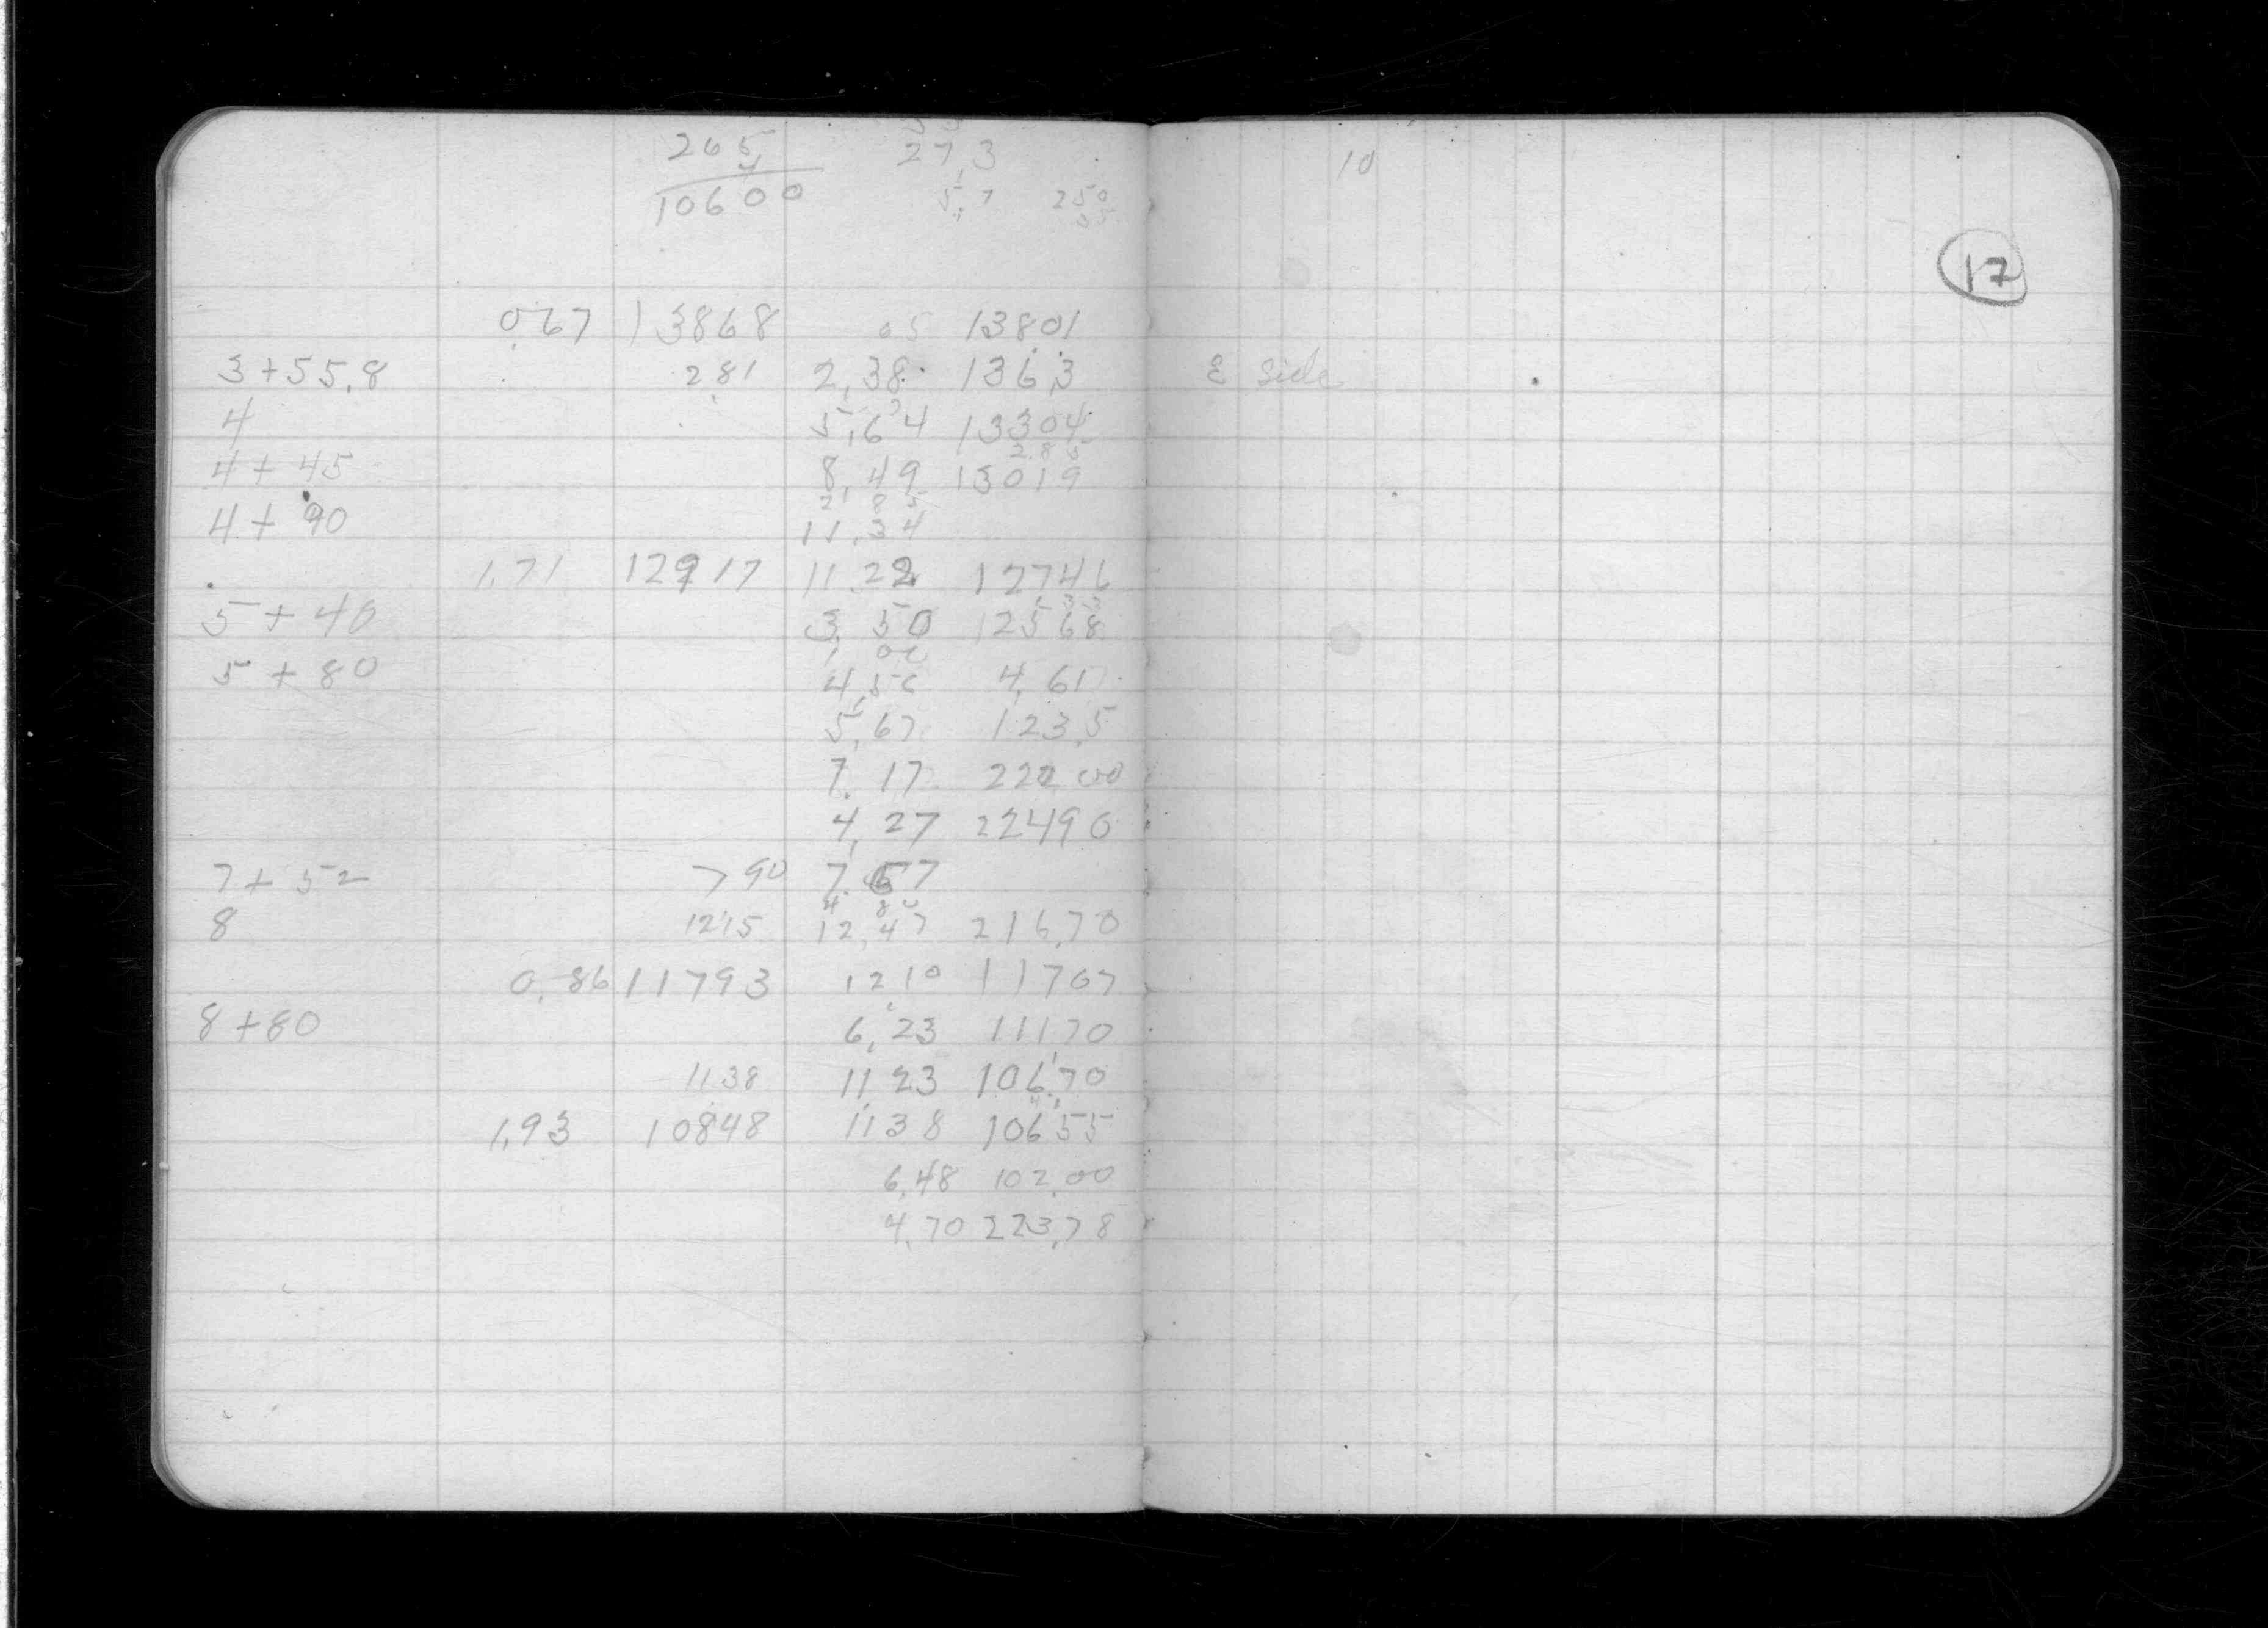 265 27,3 10
4 5,7 250
10600
17
0,67 13868 05 13801
3+55,8 2,81 2,38 136,3 E Side
4 5,64 13304
2 8 5
4+45 8,49 13019
2 8 5
4+90 11,34
1,71 12917 11,22 12746
5+40 3,50 12568
1 00
5+80 4,50 4,61
5,67 123,5
7,17 222 00
4,27 22490
7+52 790 7,67
4 80
8 1215 12,47 216,70
0,86 11793 1210 11707
8+80 6,23 11170
1138 11 23 106,70
1,93 10848 1138 10655
6,48 102,00
4,70 223,78